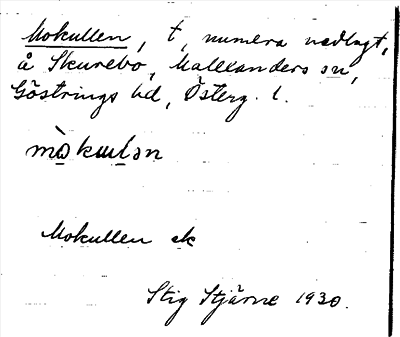 Mokullen, t, numera nedlagt,
å Skurebo, Malexanders sn,
Göstrings hd, Österg. l.
mòkulən
Mokullen ek
Stig Stjärne 1930.